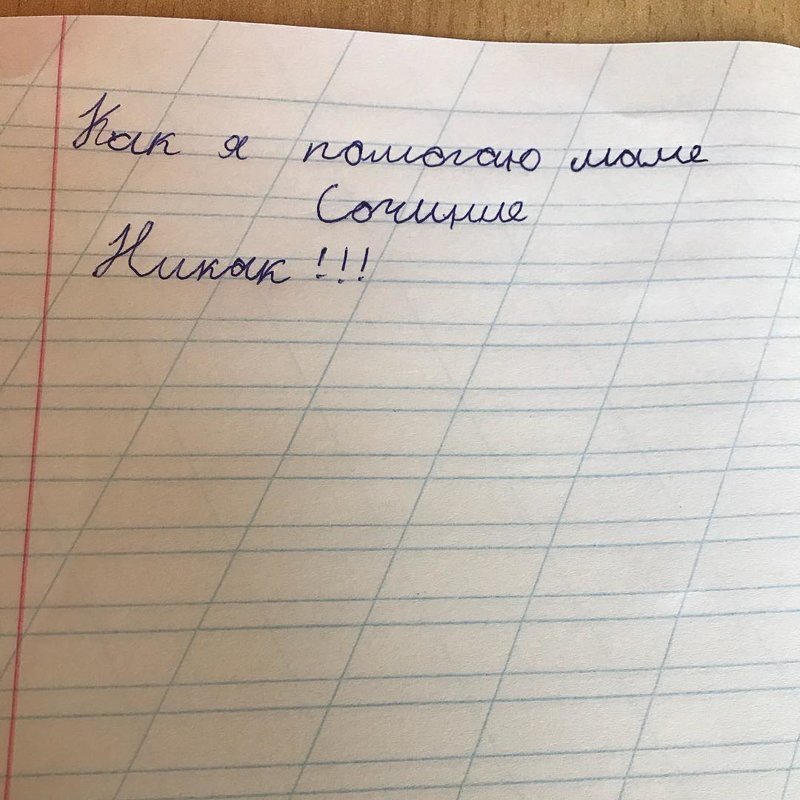 Как я помогаю маме
Сочиние
Никак!!!